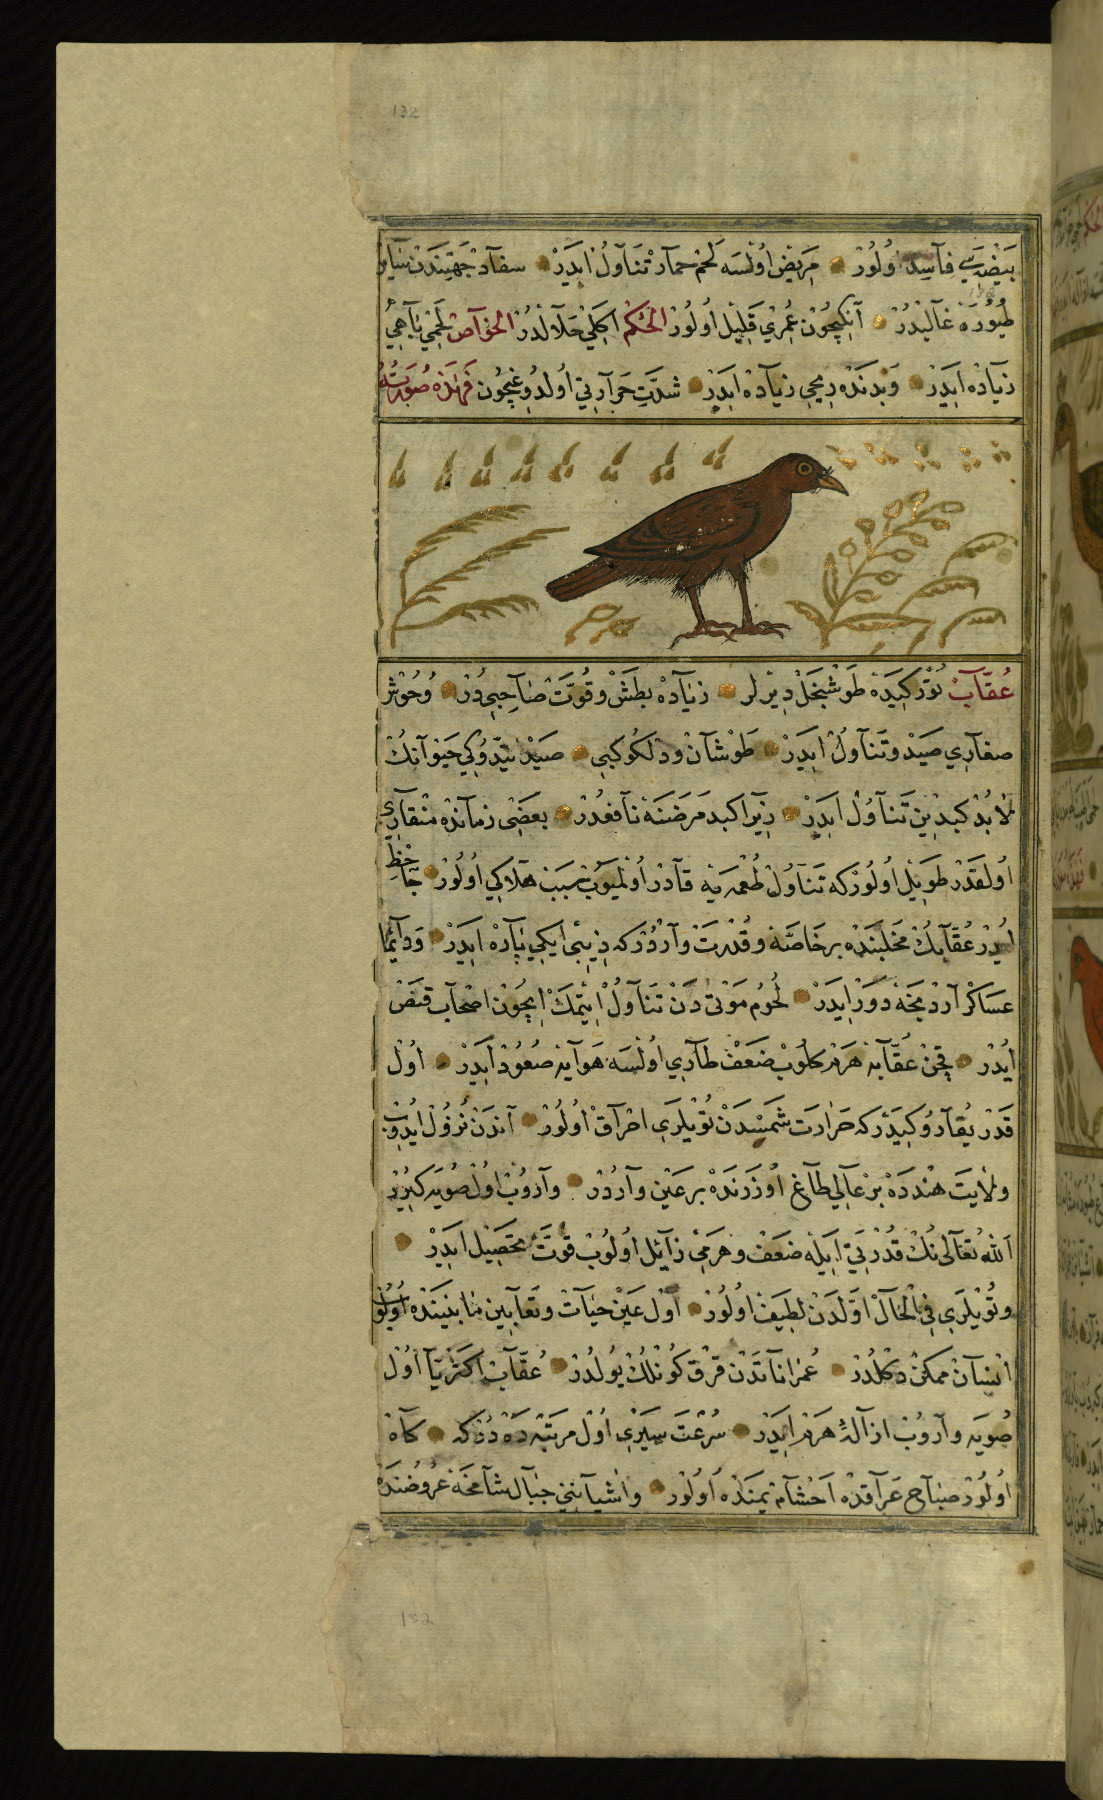 132
بَيْضَه سِي فَاسِد اُولُوْرْ مَرِيضْ اُولْسَه لَحْمِ حِمَارْ تَنَاوُلْ اِيدَرْ سفاد جهتيندن سائر
طُيُورَه غَالِبْدُرْ آنِكِيچُونْ عُمْرِي قَلِيلْ اُولُوْرْ الْحُكْمْ اَكْلِي حَلَالْدُرْ الْخَوَاصّ لَحْمِي بَاهِي
زِيَادَه اِيدَرْ وَ بَدَنْدَه رِيحِي زِيَادَه اِيدَرْ شِدَّتِ حَرَارَتِي اُولْدُوغِيچُونْ فَهٰذِهِ صُورَتُهُ
عُقَابْ تُوْرْكِيدَه طَوْشَنْجَلْ دِيرْلَرْ زِيَادَه بَطْشْ و قُوَّتْ صَاحِبِيدُرْ وُحُوشْ
صِغَارِي صَيْد و تَنَاوُلْ اِيدَرْ طَوْشَانْ و دِلْكُو كِبِي صَيْد اِتْدُوكِي حَيْوَانُكْ
لَابُدْ كَبِدْيِنْ تَنَاوُلْ اِيدَرْ زِيرَا كَبِد مَرَضَنَه نَافِعْدُرْ بَعْضِي زَمَانْدَه مِنْقَارِي
اُولْقَدَرْ طَوِيلْ اُولُوْرْكه تَنَاوُلْ طُعْمَه يَه قَادِرْ اُولْمَيُوبْ سَبَبْ هَلَاكِي اُولُوْرْ جَاحِظْ
اَيْدُرْ عُقَابُكْ مِخْلَبَنْدَه بِرْ خَاصَّه و قُدْرَتْ وَارْدُرْكه ذِيبِي اِيكِي پَارَه اِيدَرْ وَ دَائِمَا
عَسَاكِرْ آرْدِنْجَه دَوْرْ اِيدَرْ لُحُومِ مَوْتَى دَنْ تَنَاوُلْ اِيتْمَكْ اِيچُونْ اَصْحَابْ قَنَصْ
اَيْدُرْ قَچَنْ عُقَابَه هَرَمْ كَلُوبْ ضَعْفْ طَارِي اُولْسَه هَوَايَه صُعُودْ اِيدَرْ اُولْ
قَدَرْ يُقَارُو كِيدَرْكه حَرَارَتِ شَمْسْدَنْ تُوْيْلَرِي اِحْرَاقْ اُولُوْرْ آنْدَنْ نُزُولْ اِيدُوبْ
وِلَايَتِ هِنْدْدَه بِرْ عَالِي طَاغْ اُوزَرَنْدَه بِرْ عَيْنْ وَارْدُرْ وَارُوبْ اُولْ صُويَه كِيرُرْ
اَللّٰه تَعَالٰى نُكْ قُدْرَتِي اِيلَه ضَعْفْ و هَرَمِي زَائِلْ اُولُوبْ قُوَّتْ تَحْصِيلْ اِيدَرْ
و تُوْيْلَرِي فِي الْحَالْ اَوَّلْدَنْ لَطِيفْ اُولُوْرْ اُولْ عَيْنْ حَيَاتْ و تَعَابِين مَا بَيْنَنْدَه اُولُوْ
اِنْسَانْ مُمْكِنْ دَكُلْدُرْ عُمْرَانَاتْدَنْ قِرْقْ كُونْلُكْ يُولْدُرْ عُقَابْ اَكْثَرِيَّا اُولْ
صُويَه وَارُوبْ اِزَالَهٔ هَرَمْ اِيدَرْ سُرْعَتْ سَيْرِي اُولْ مَرْتَبَه دَه دُرْكه كَاهْ
اُولُوْرْ صَبَاحْ عِرَاقْدَه اَخْشَامْ يَمَنْدَه اُولُوْرْ و آشْيَانَنِي جِبَالِ شَامِخَه عُرُوضَنْدَه
152